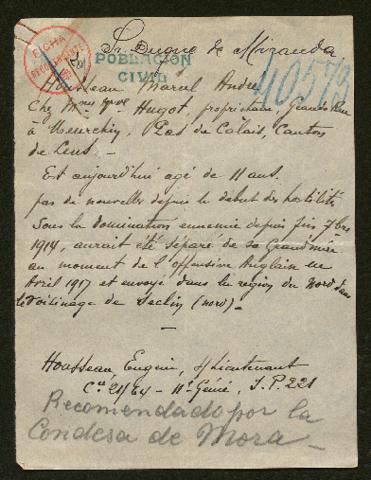 Sr. Duque de Miranda
FICHA
POBLACIÓN
CIVIL
40573
Housseau Marcel André
Chez Mme Vve Hugot, propriétaire, Grande Rue
à Meurchin, Pas de Calais, Canton
de Lens. -
Est aujourd'hui agé de 11 ans.
pas de nouvelles depuis le début des hostilités
Sous la domination ennemie depuis fin 7bre
1914, aurait été séparé de sa Grand'mère
au moment de l'offensive Anglaise en
Avril 1917 et envoyé dans la région du Nord dans
le voisinage de Seclin (nord) -
Housseau Eugène, s/Lieutenant
Cie 21/64 - 11e Génie, S.P. 221
Recomendado por la
Condesa de Mora -